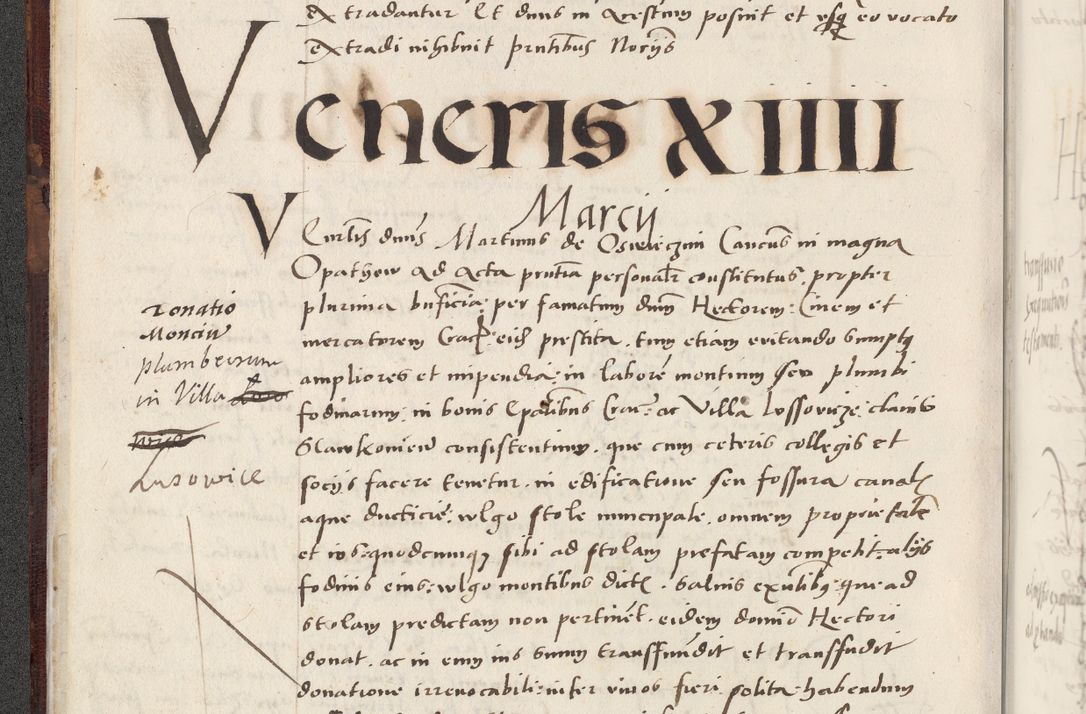 Extradantur Et dnus in Questum posuit et usq eo vocato
Extradi inhibuit pntibus Noriis
Veneris XIIII
Marcij
dnus Martinus de Oswieczin in magna
Opathow ad acta pntia personalr constitutus, propter
plurima bnficia: per famatum dnm Hectorem: Civem et
mercatorem Crac: eidem prestita. tum etiam evitando sumptq
ampliores et impendia: in labore montium seu plumbi
fodinarum: in bonis Crac: ac Villa Lossovicze: claris
Slawkoniew consistentium. que cum ceteris collegis et
sociis facere tenetur. in edificatione seu fossura canalis
aque ducticie: wlgo stole nuncupate. omnem proprietatem
et ius: quodcumqz sibi ad stolam prefatam competit: aliis
fodinis eius: wlgo montibus dictis. salvis que ad
stolam predictam non pertinent. eidem domino Hectori
donat. ac in eum ius suum transfundit et transfudit
donatione irrevocabili: inter vivos fieri solita habendum
Donatio
Moncium
plumbeorum
in Villa
Lusowice